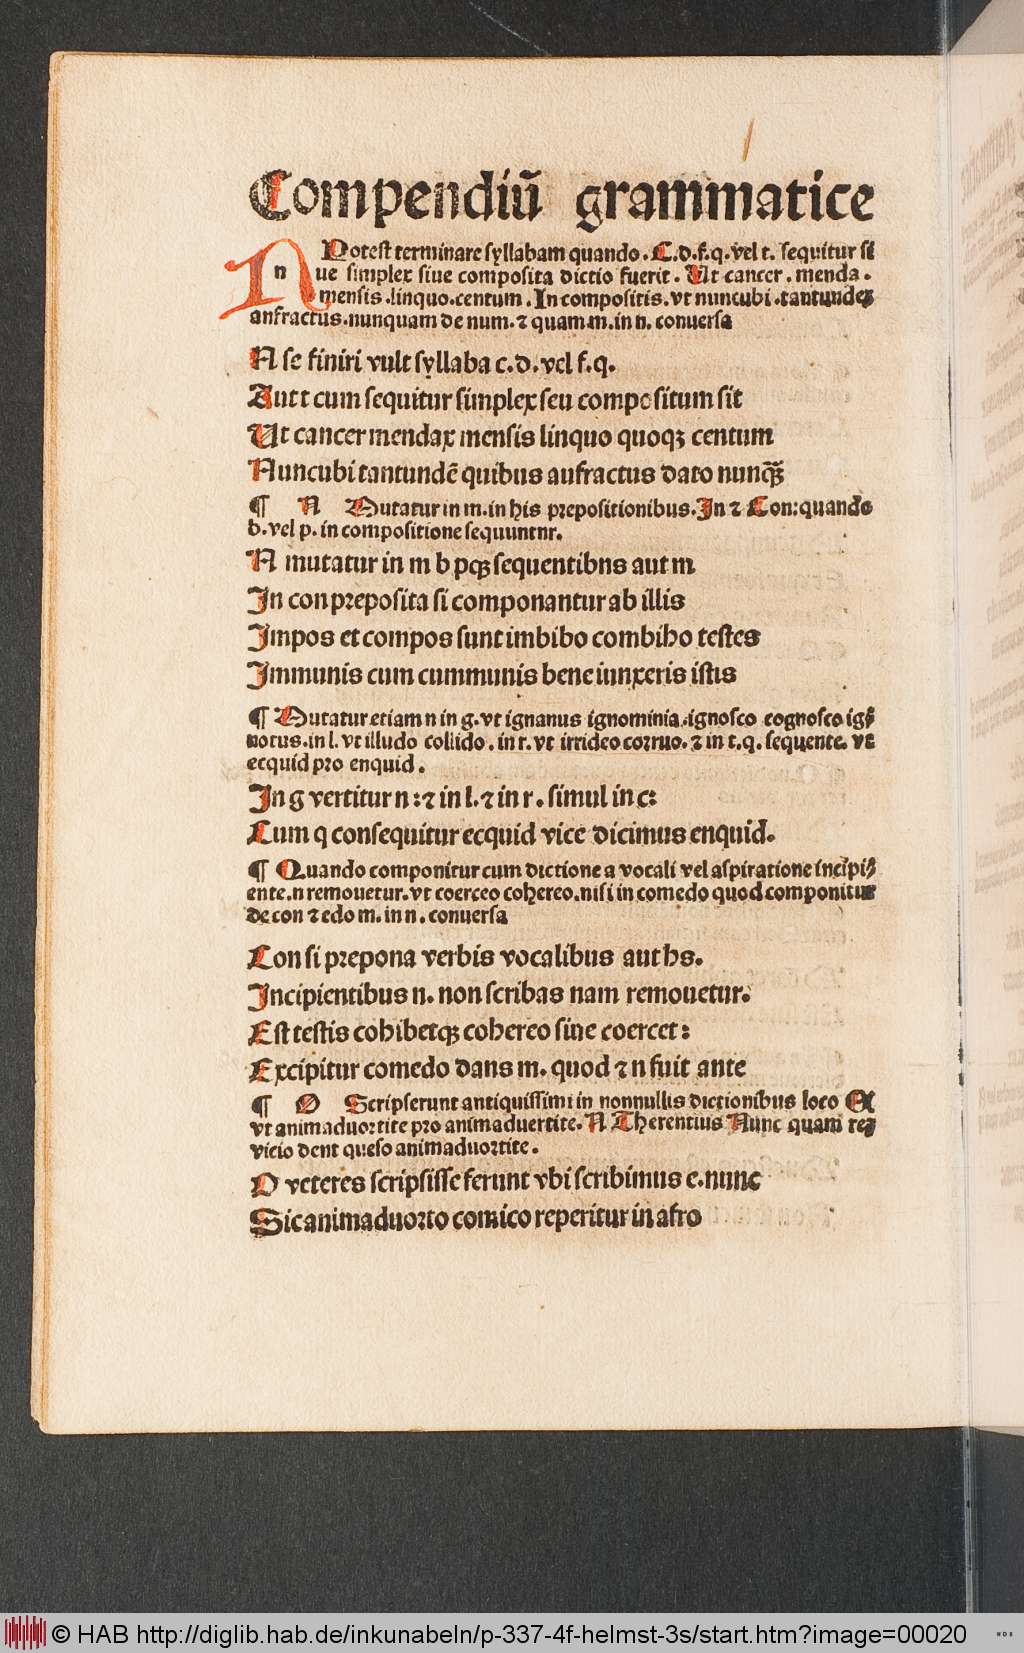 Compendiū grammatice
N Potest terminare syllabam quando. C.d.f.q.vel t. sequitur si
ue simplex siue composita dictio fuerit. Ut cancer. menda.
mensis.linquo.centum. In compositis.vt nuncubi.tantundez
anfractus.nunquam de num.⁊ quam.m.in n. conuersa
N se finiri vult syllaba c.d.vel f.q.
Aut t cum sequitur simplex seu compositum sit
Ut cancer mendax mensis linquo quoqꝫ centum
Nuncubi tantundē quibus aufractus dato nunqꝫ̄
¶ N Mutatur in m.in his prepositionibus.In ⁊ Con:quando
b.vel p. in compositione sequuntnr.
N mutatur in m b pqꝫ sequentibns aut m
In con preposita si componantur ab illis
Impos et compos sunt imbibo combibo testes
Immunis cum cummunis bene iunxeris istis
¶ Mutatur etiam n in g.vt ignanus ignominia.ignosco cognosco ig
notus.in l. vt illudo collido. in r. vt irrideo corruo.⁊ in t.q. sequente. vt
ecquid pro enquid.
In g vertitur n:⁊ in l.⁊ in r. simul in c:
Cum q consequitur ecquid vice dicimus enquid.
¶ Quando componitur cum dictione a vocali vel aspiratione incipi
ente.n remouetur.vt coerceo cohereo.nisi in comedo quod componitur
de con ⁊ edo m. in n. conuersa
Con si prepona verbis vocalibus aut hs.
Incipientibus n. non scribas nam remouetur.
Est testis cohibetqꝫ cohereo siue coercet:
Excipitur comedo dans m. quod ⁊ n fuit ante
¶ O Scripserunt antiquissimi in nonnullis dictionibus loco E
vt animaduortite pro animaduertite. N Therentius Nunc quam rez
vicio dent queso animaduortite.
O veteres scripsisse ferunt vbi scribimus e.nunc
Sic animaduorto comico reperitur in afro
© HAB http://diglib.hab.de/inkunabeln/p-337-4f-helmst-3s/start.htm?image=00020